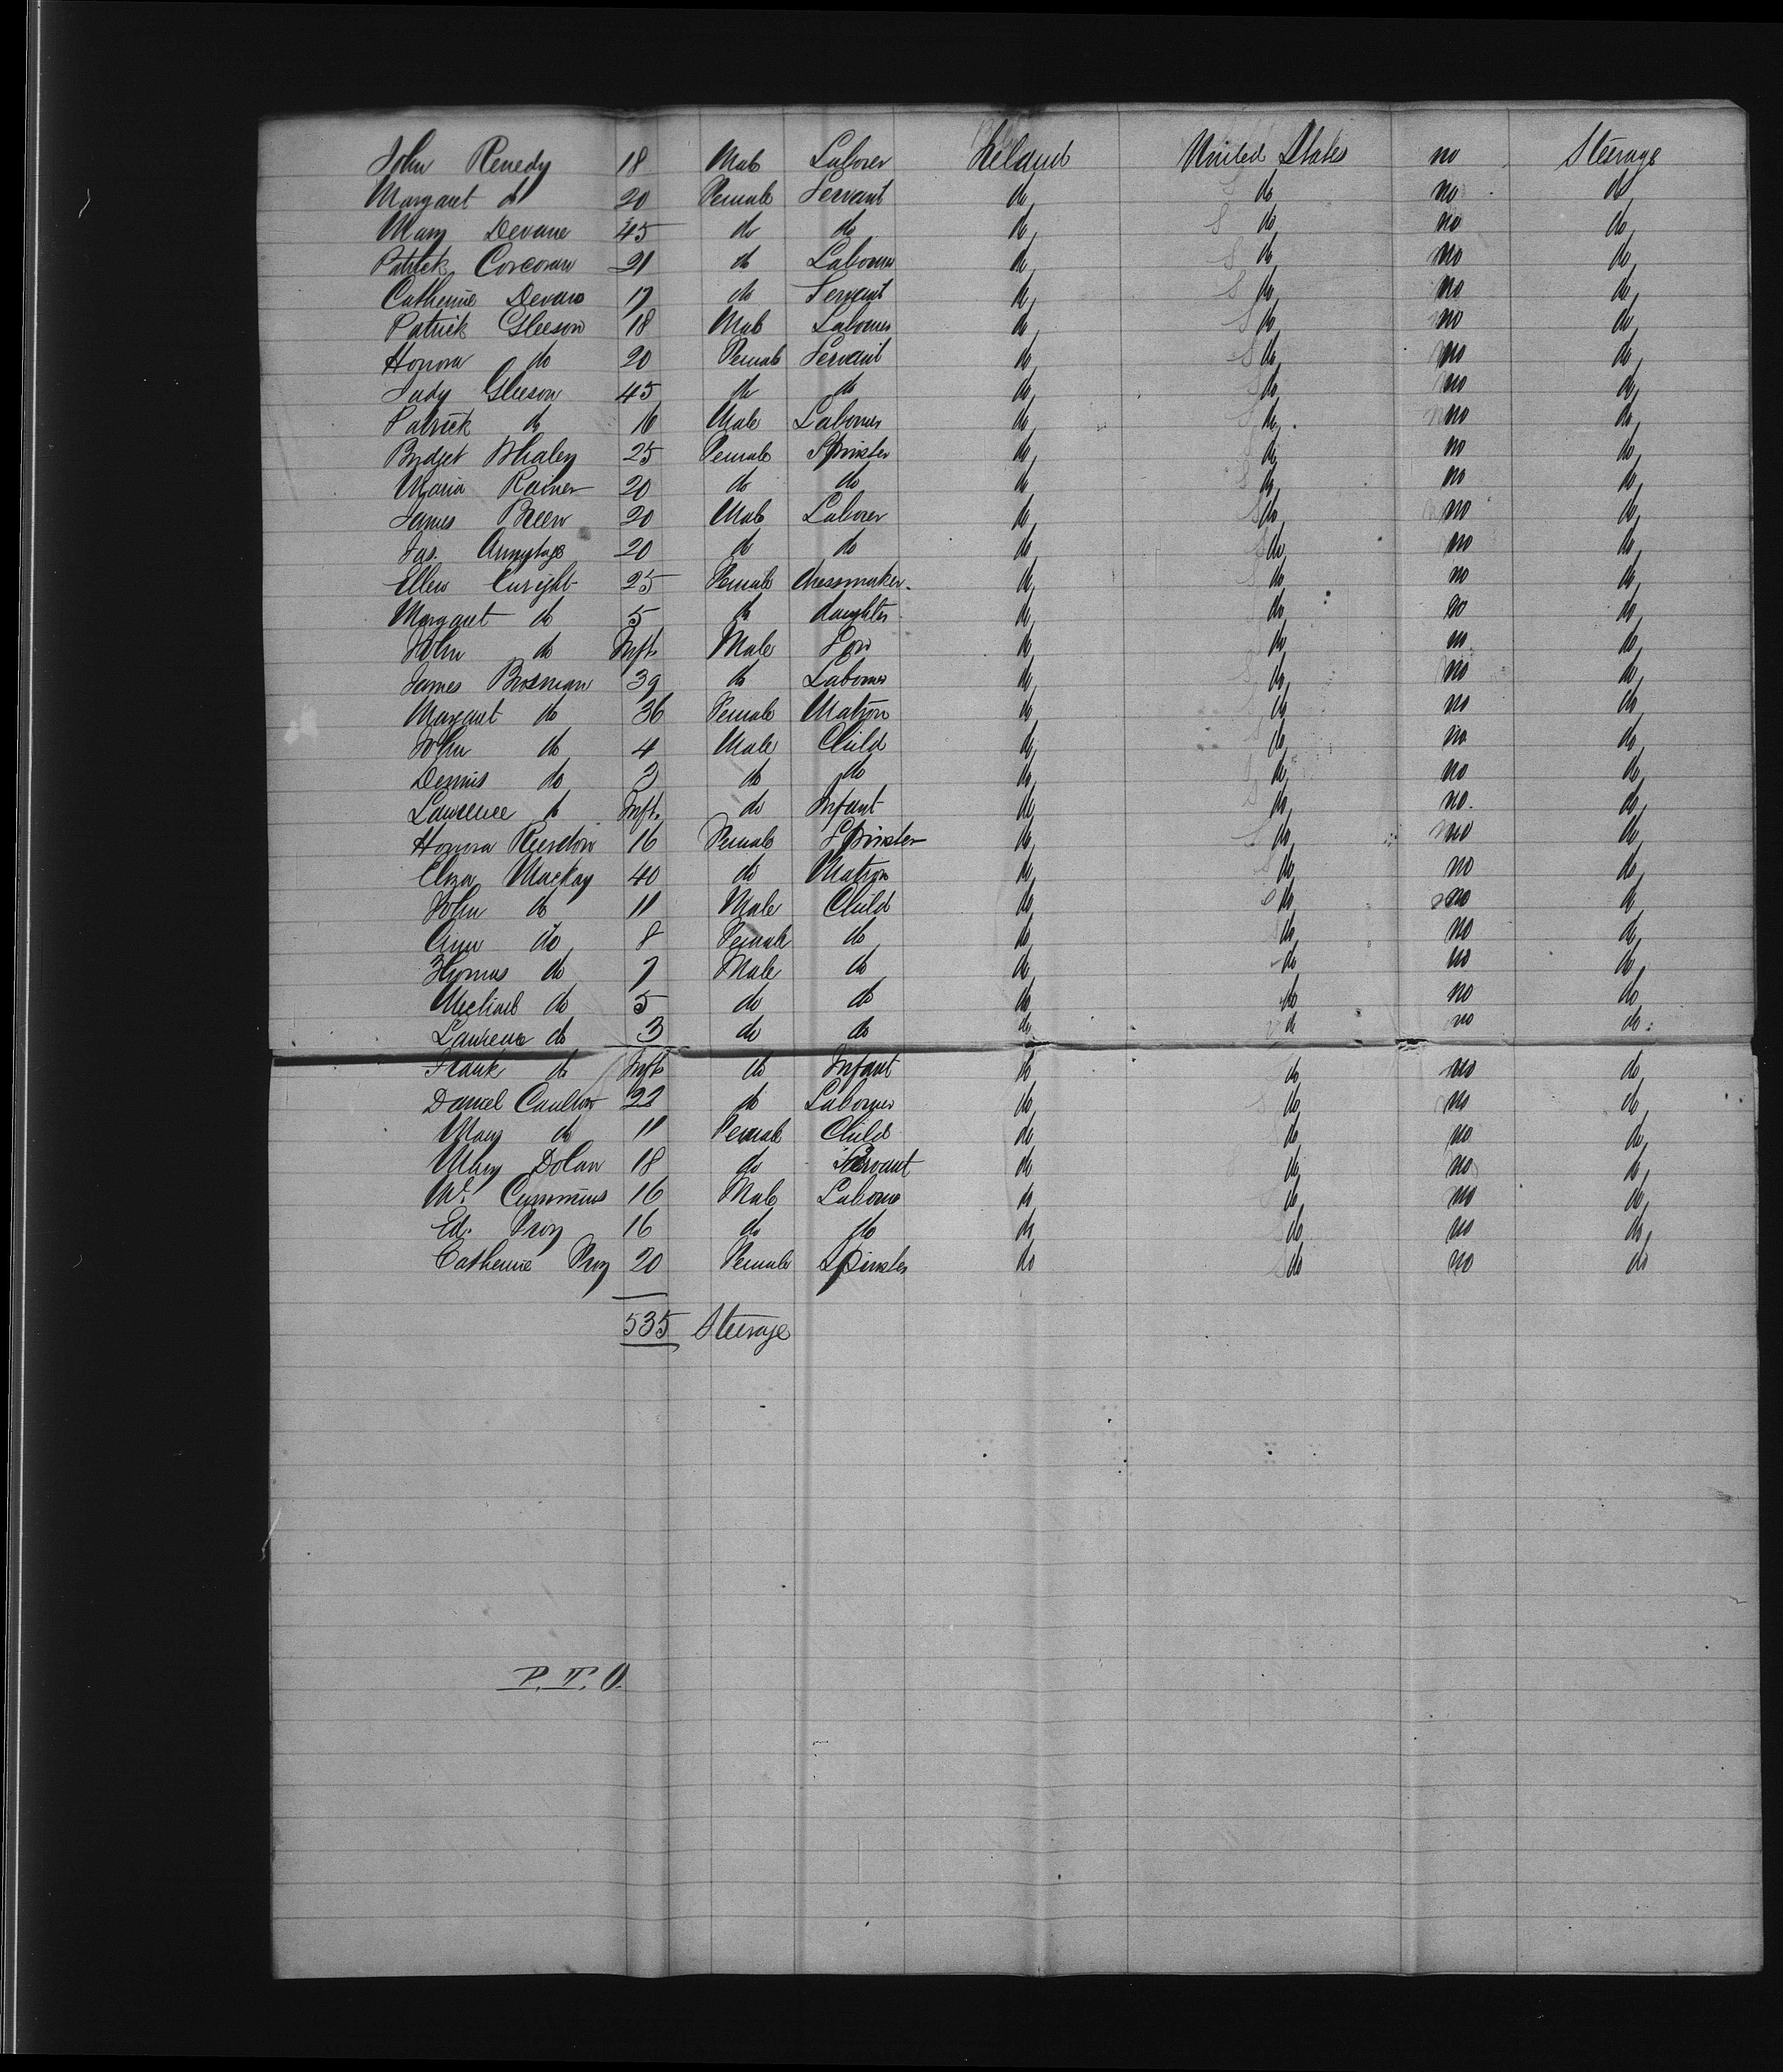 John Renedy 18 Male Laborer Ireland United States no Steerage
Margaret do 20 Female Servant do do no do
Mary Devane 45 do do do do no do
Patrick Corcoran 21 do Labourer do do no do
Catherine Devane 17 do Servant do do no do
Patrick Gleeson 18 Male Labourer do do no do
Honora do 20 Female Servant do do no do
Judy Gleeson 45 do do do do no do
Patrick do 16 Male Labourer do do no do
Bridget Whaley 25 Female Spinster do do no do
Maria 20 do do do do no do
James Breen 20 Male Laborer do do no do
Jas. Armytage 20 do do do do no do
Ellen Enright 25 Female dressmaker. do do no do
Margaret do 5 do daughter do do no do
John do Inft. Male Son do do no do
James Brosnan 39 do Labourer do do no do
Margaret do 36 Female Matron do do no do
John do 4 Male Child do do no do
Dennis do 3 do do do do no do
Lawrence do Inft. do Infant do do no. do
Honora Reardon 16 Female Spinster do do no do
Eliza Mackay 40 do Matron do do no do
John do 11 Male Child do do no do
Ann do 8 Female do do do no do
Thomas do 7 Male do do do no do
Michael do 5 do do do do no do
Lawrence do 3 do do do do no do
Frank do Inft. do Infant do do no do
Daniel 22 do Labourer do do no do
Mary do 11 Female Child do do no do
Mary Dolan 18 do Servant do do no do
Wm. Cummins 16 Male Labourer do do no do
Ed. 16 do do do do no do
Catherine 20 Female Spinster do do no do
535 Steerage
P.T.O.